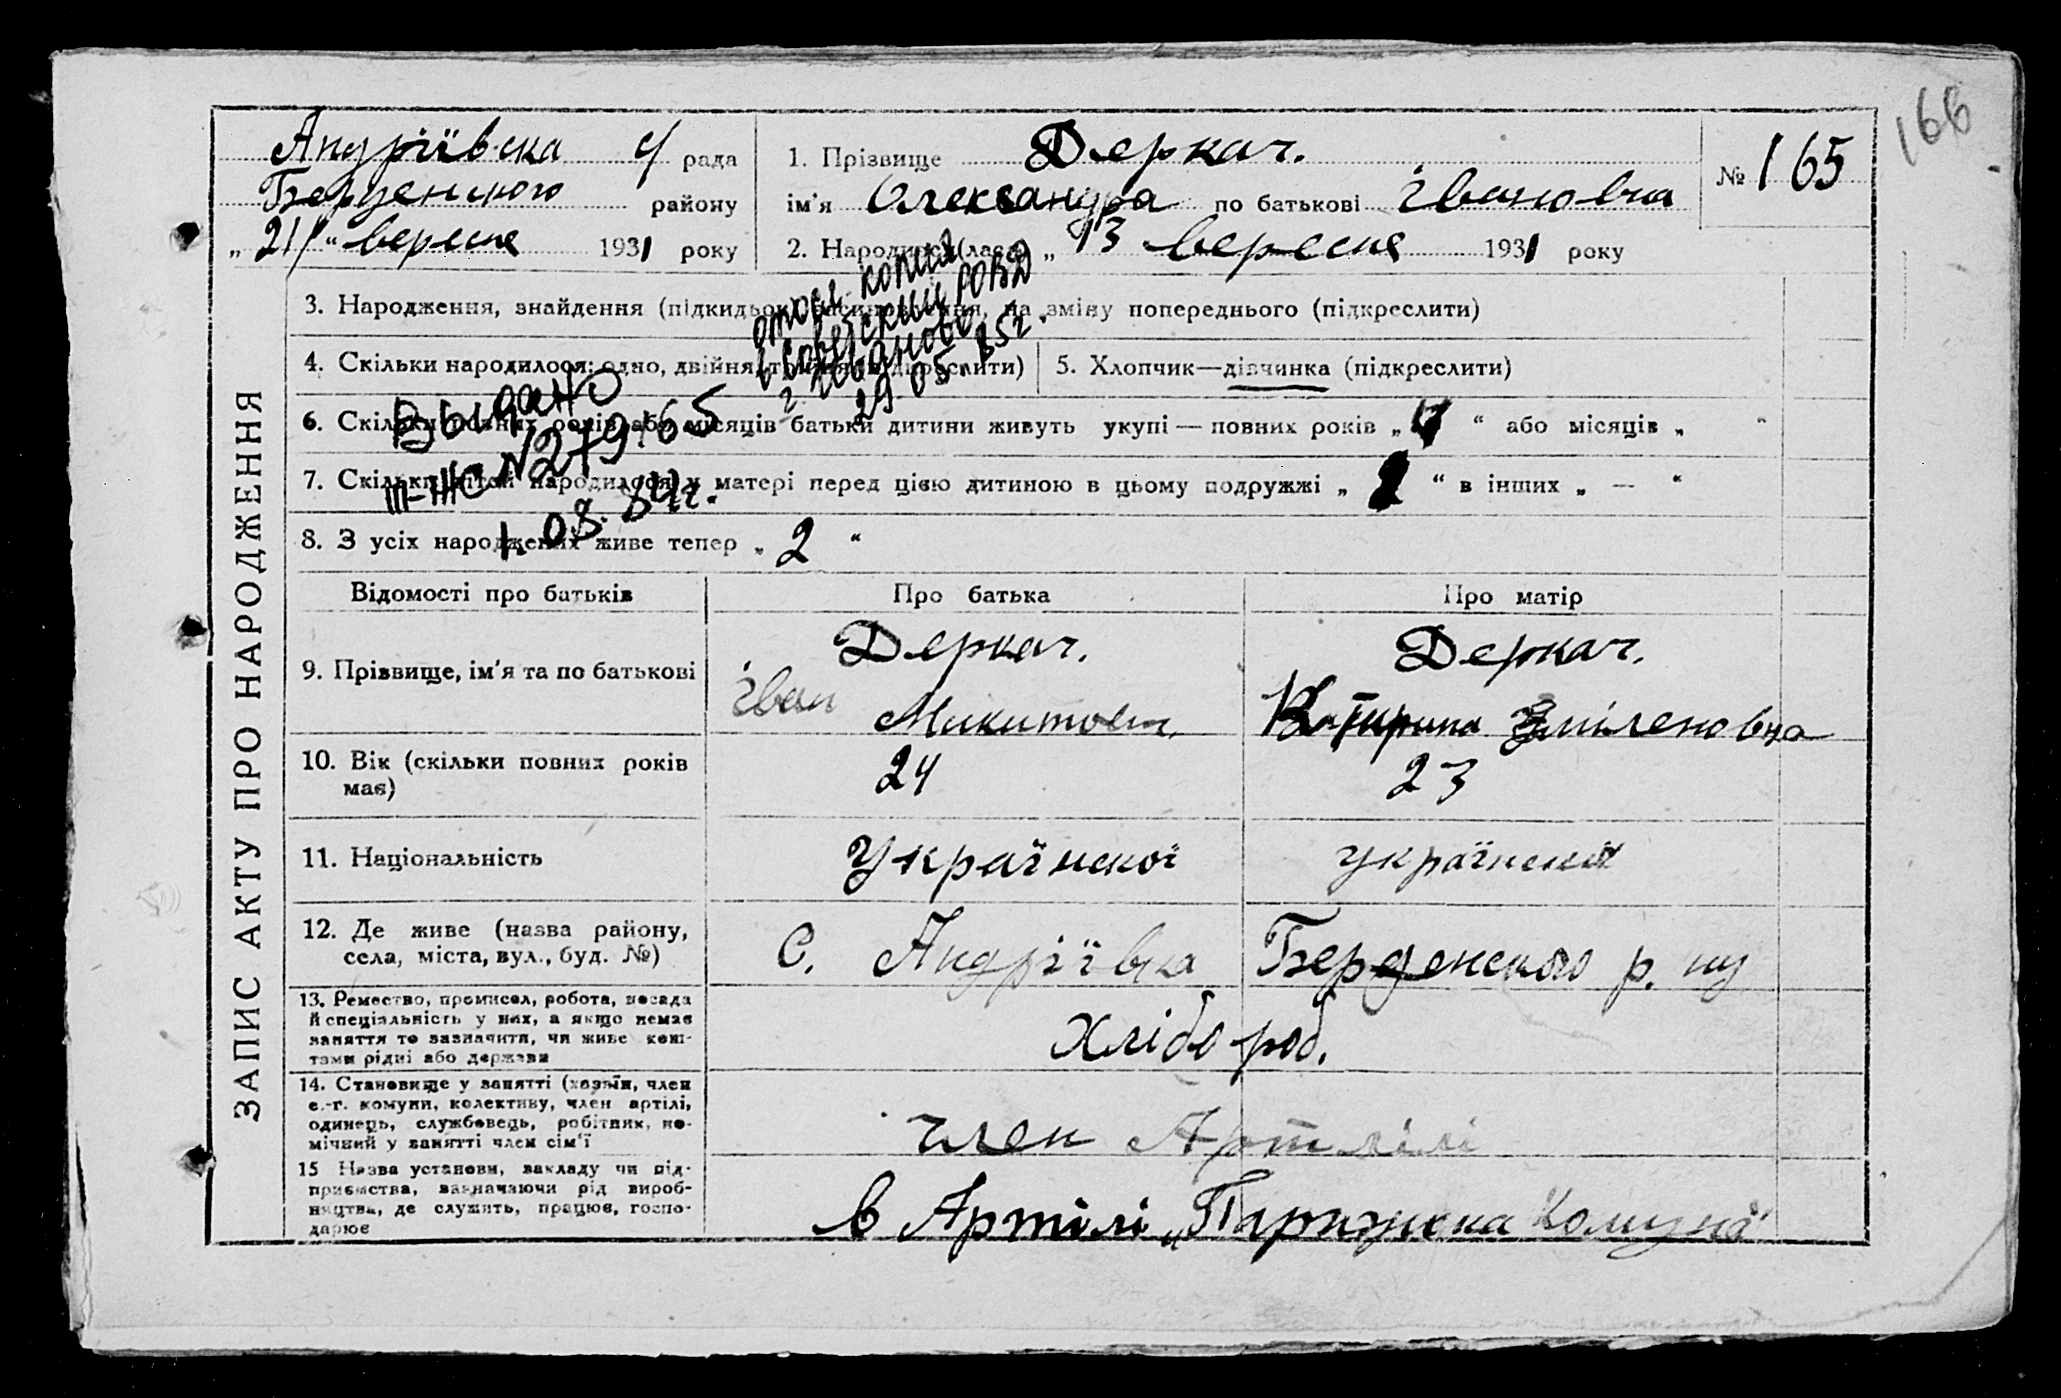 166
Андріївска с/ рада
Берденского району
„ 21/ “ вересня 1931 року
1. Прізвище Деркач.
ім'я Олександра по батькові Івановна
2. Народився (лася) „ 13 вересня 1931 року
№ 165
ЗАПИС АКТУ ПРО НАРОДЖЕННЯ
3. Народження, знайдення (підкидьок) на зміну попереднього (підкреслити)
4. Скільки народилося: одно, двійня, (підкреслити)
5. Хлопчик—дівчинка (підкреслити)
6. Скільки повних років або місяців батьки дитини живуть укупі — повних років „ “ або місяців „ “
7. Скільки дітей народилося у матері перед цією дитиною в цьому подружжі „ 2 “ в інших „ — “
8. З усіх народжених живе тепер „ 2 “
копия
в Советский РОВД
г. Иваново
29.05.85г.
Выдано
III-ЖС №279165
1.08.84г.
Відомості про батьків
Про батька
Про матір
9. Прізвище, ім'я та по батькові
Деркач.
Іван Микитович.
Деркач.
Катирина
10. Вік (скільки повних років має)
24
23
11. Національність
Української
українська
12. Де живе (назва району,
села, міста, вул., буд. №)
С. Андріївка Берденського р. ну
13. Ремество, промисел, робота, посада
й спеціяльність у них, а якщо немає
заняття то зазначити, чи живе кош-
тами рідні або держави
Хлібороб.
14. Становище у занятті (хазяїн, член
с.-г. комуни, колективу, член артілі,
одинець, службовець, робітник, по-
мічний у занятті член сім'ї
член Артілі
15 Назва установи, закладу чи під-
приємства, зазначаючи рід вироб-
ництва, де служить, працює, госпо-
дарює
в Артілі „Паризска Комуна"